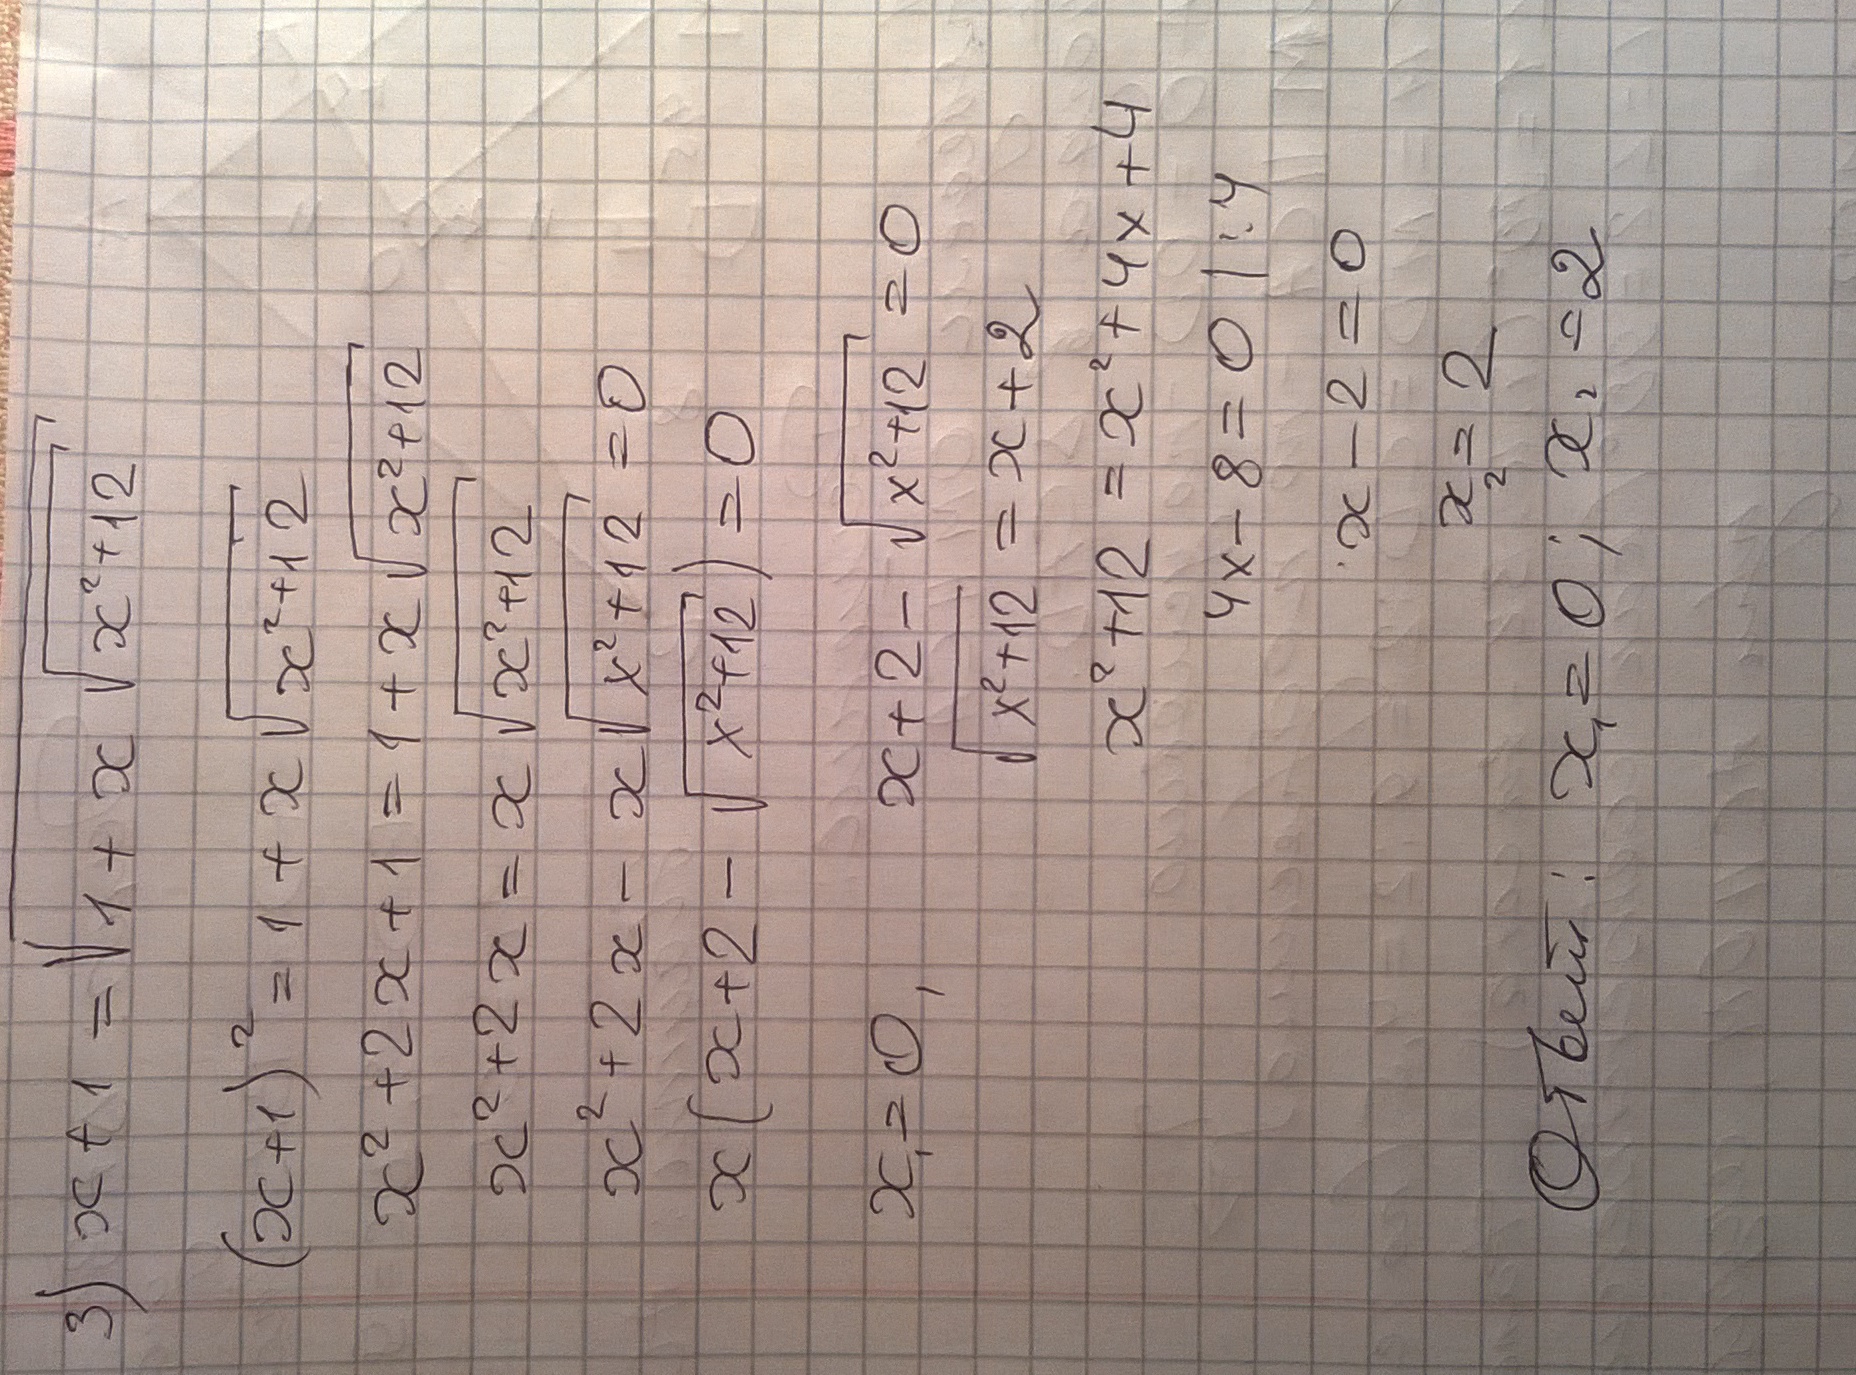 3) x+1=√(1+x√(x²+12))
(x+1)²=1+x√(x²+12)
x²+2x+1=1+x√(x²+12)
x²+2x=x√(x²+12)
x²+2x-x√(x²+12)=0
x(x+2-√(x²+12))=0
x₁=0, x+2-√(x²+12)=0
√(x²+12)=x+2
x²+12=x²+4x+4
4x-8=0 |:4
x-2=0
x₂=2
Ответ: x₁=0; x₂=2